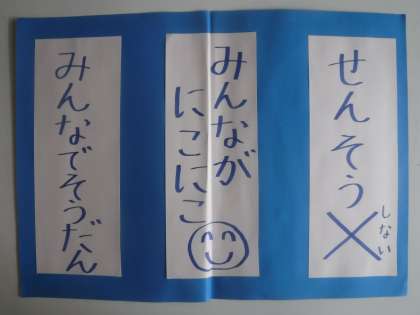 せんそう×
しない
みんなが
にこにこ
みんなでそうだん